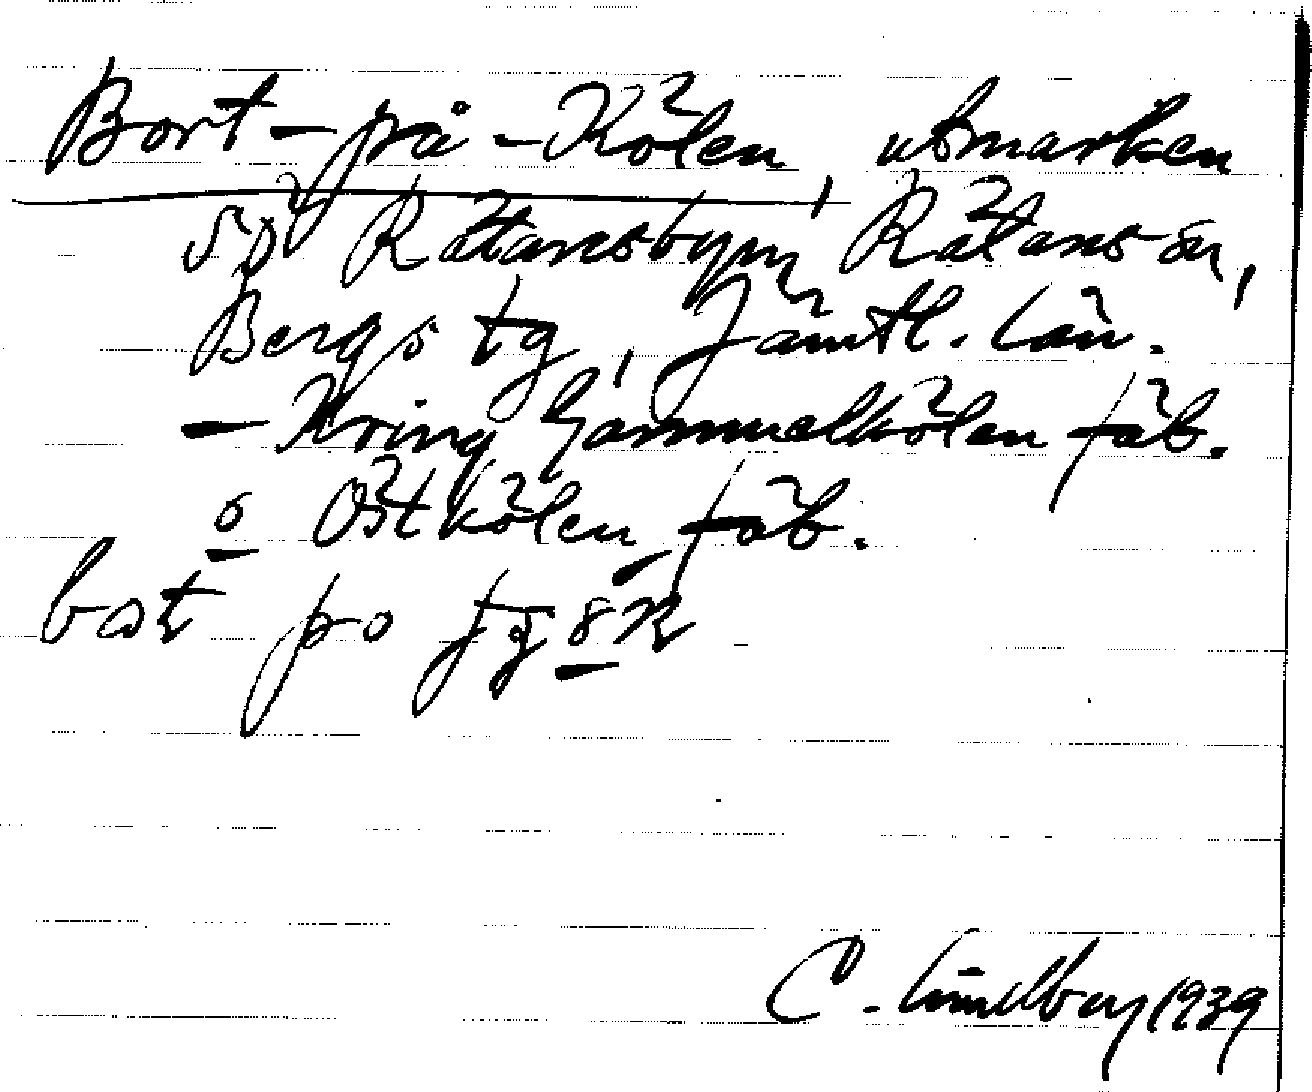 Bort-på-Kölen, utmarken
S på Rätansbyn, Rätans sn,
Bergs tg, Jämtl. län.
- Kring Gammelkölen fäb.
o Östkölen, fäb.
bot po
C. Lindberg 1939